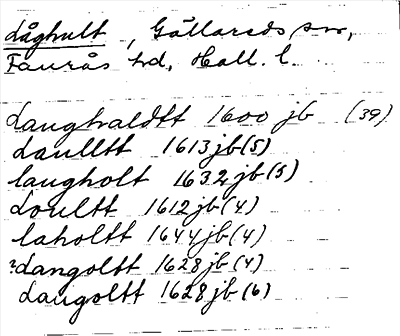 Låghult, Gällareds sn,
Faurås hd, Hall. l.
Laughvaldtt 1600 jb (39)
Laulltt 1613 jb (5)
laugholt 1632 jb (5)
Loultt 1612 jb (4)
laholtt 1644 jb (4)
?Langoltt 1628 jb (4)
Laugoltt 1628 jb (6)